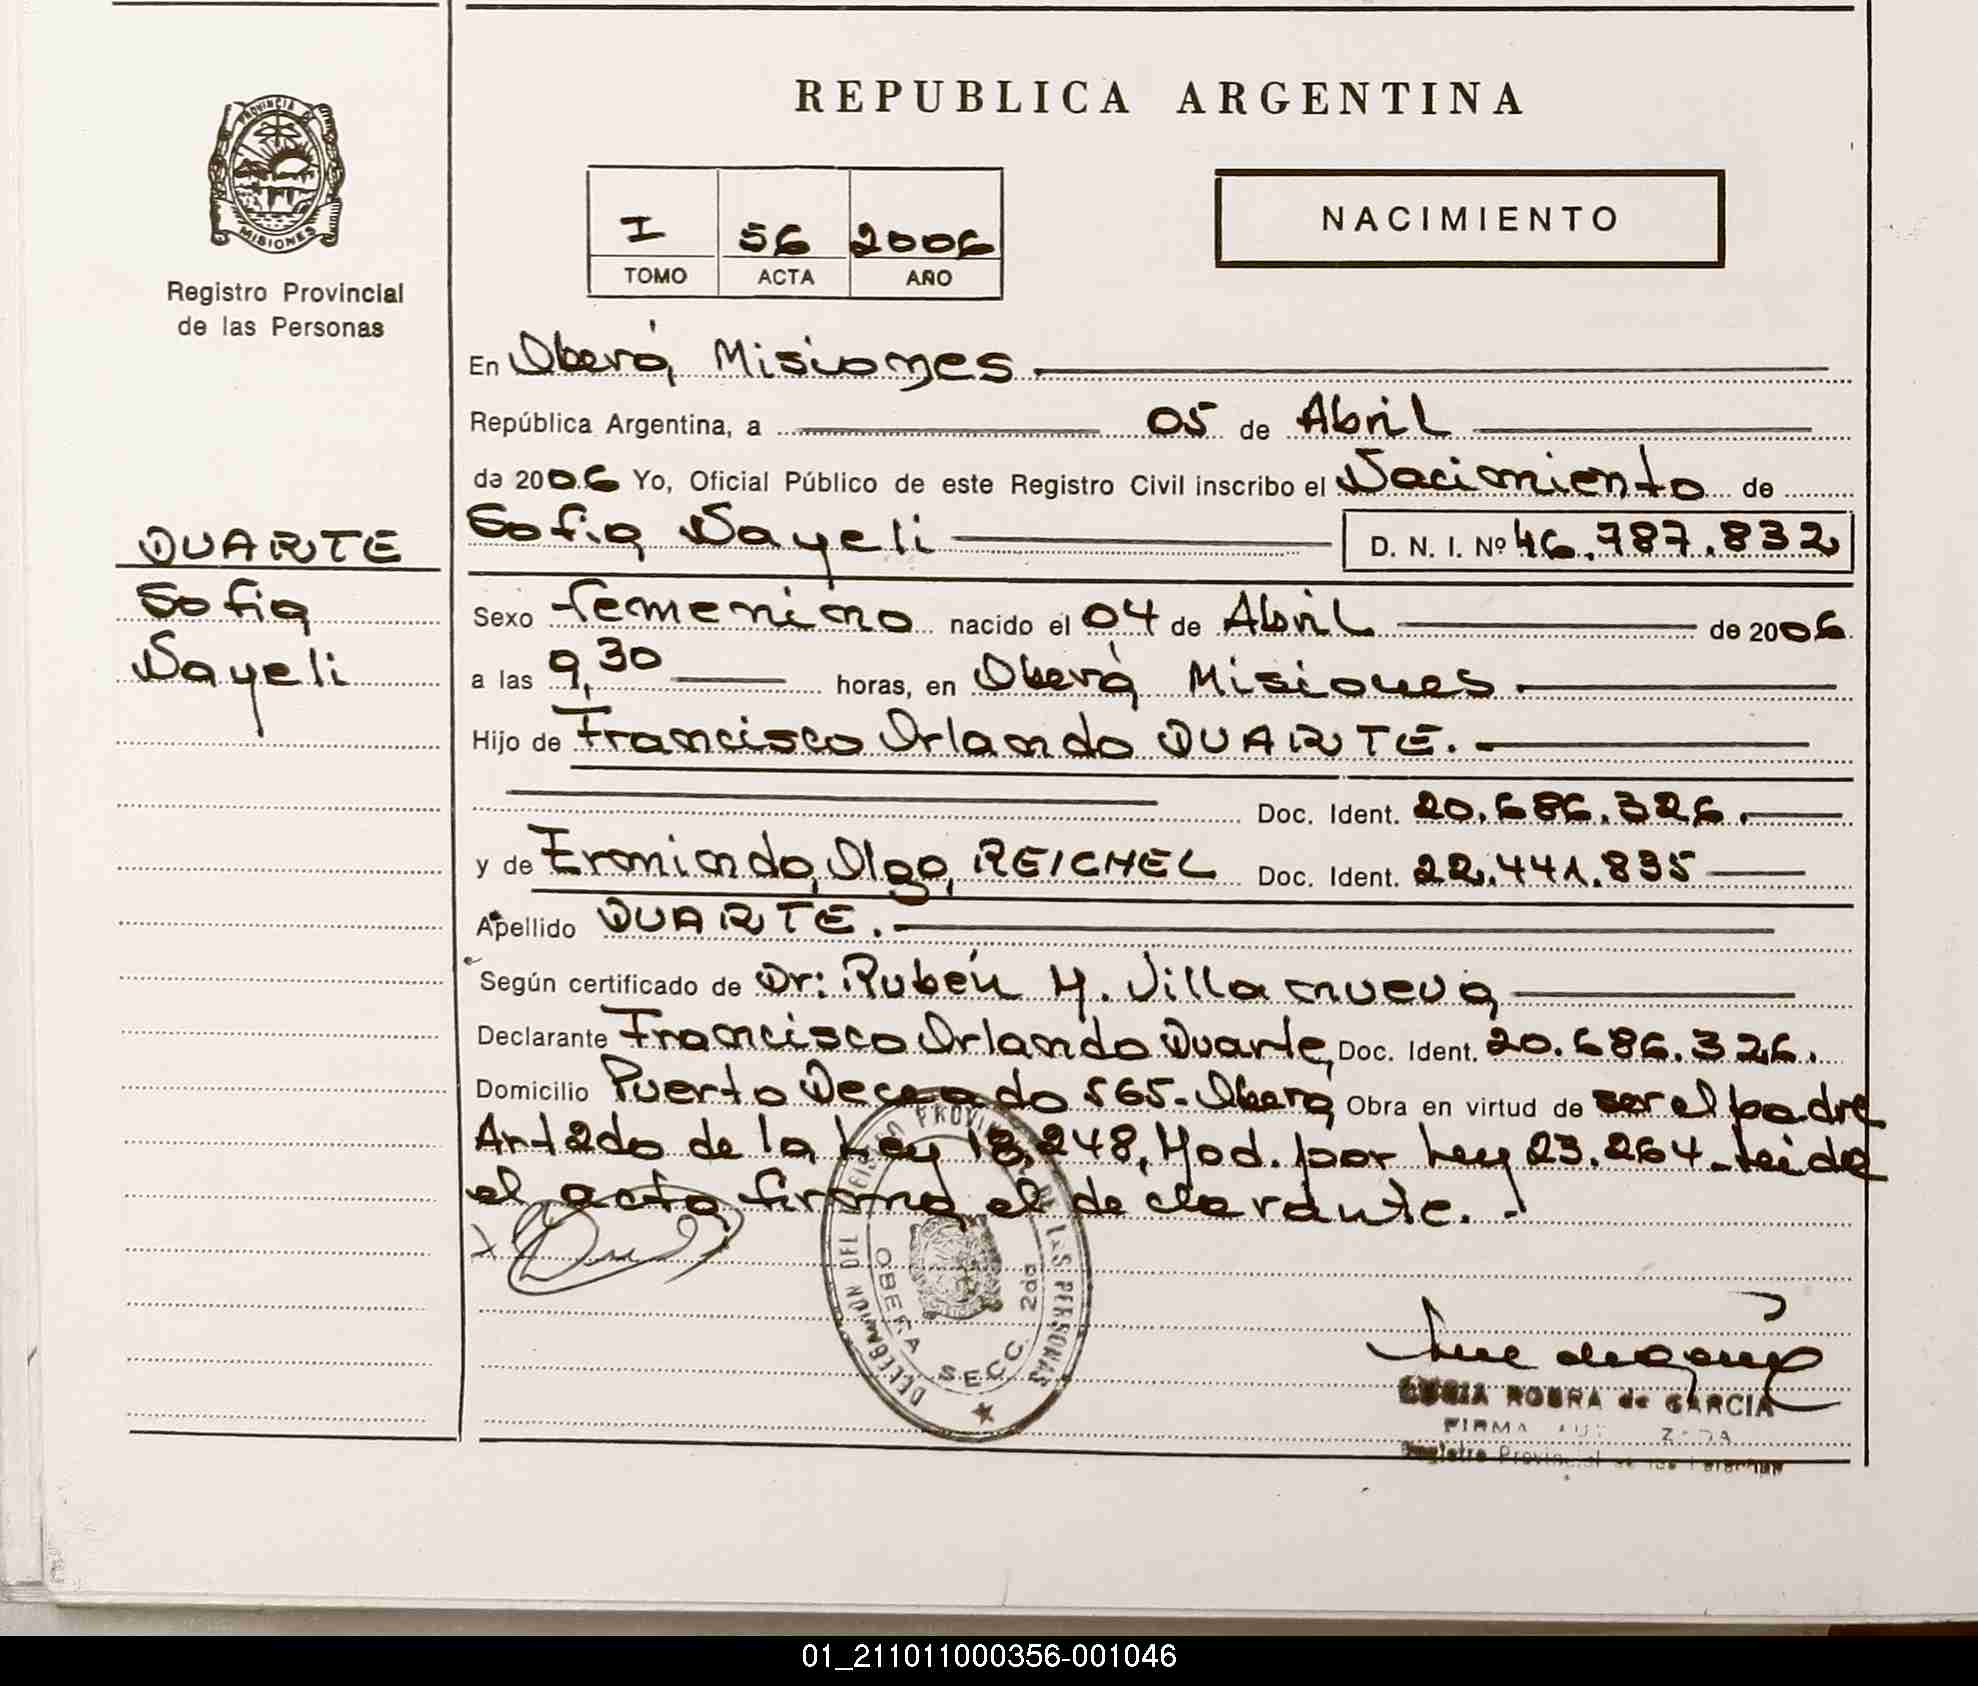 REPUBLICA ARGENTINA
PROVINCIA DE
MISIONES
Registro Provincial
de las Personas
I 56 2006
TOMO ACTA AÑO
NACIMIENTO
En Oberá, Misiones
República Argentina, a 05 de Abril
de 2006 Yo, Oficial Público de este Registro Civil inscribo el Nacimiento de
Sofia Nayeli D. N. I. Nº 46.787.832
DUARTE
Sofia
Nayeli
Sexo femenino nacido el 04 de Abril de 2006
a las 9,30 horas, en Oberá Misiones
Hijo de Francisco Orlando DUARTE.
Doc. Ident. 20.686.326.
y de Erminda, Olga, REICHEL Doc. Ident. 22.441.835
Apellido DUARTE.
Según certificado de Dr: Rubén H. Villanueva
Declarante Francisco Orlando Duarte, Doc. Ident. 20.686.326.
Domicilio Puerto Deseado 565- Oberá Obra en virtud de ser el padre
Art 2do de la Ley 18.248, Mod. por Ley 23.264-leida
el acta firma el declarante.-
DELEGACION DEL REGISTRO PROVINCIAL DE LAS PERSONAS
OBERA SECC. 2da
LUCIA ROBRA de GARCIA
FIRMA AUTORIZADA
Registro Provincial de las Personas
01_211011000356-001046